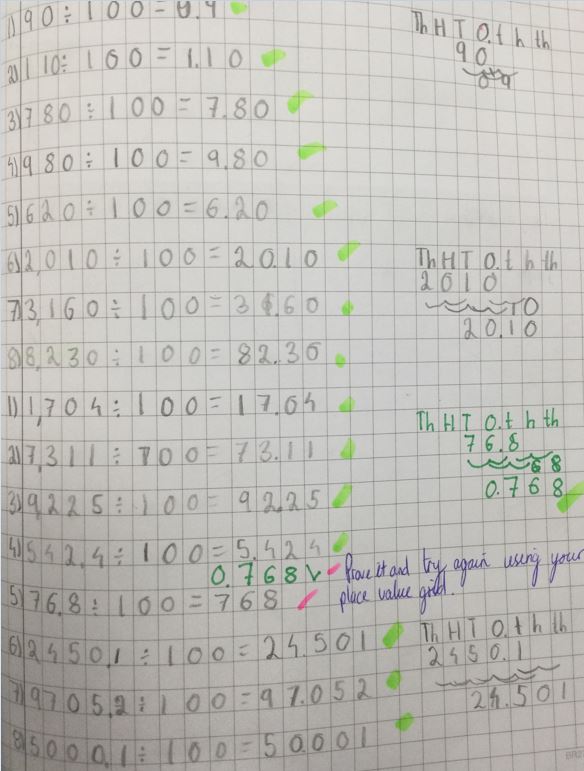 1) 90 ÷ 100 = 0.9
Th H T O. t h th
90
0.9
2) 110 ÷ 100 = 1.10
3) 780 ÷ 100 = 7.80
4) 980 ÷ 100 = 9.80
5) 620 ÷ 100 = 6.20
6) 2,010 ÷ 100 = 20.10
Th H T O. t h th
2010
20.10
7) 3,160 ÷ 100 = 31.60
8) 8,230 ÷ 100 = 82.30
1) 1,704 ÷ 100 = 17.04
2) 7,311 ÷ 100 = 73.11
Th H T O. t h th
76.8
68
0.768
3) 9225 ÷ 100 = 92.25
4) 542.4 ÷ 100 = 5.424
0.768
Prove it and try again using your
place value grid.
5) 76.8 ÷ 100 = 768
6) 2450.1 ÷ 100 = 24.501
Th H T O. t h th
2450.1
24.501
7) 9705.2 ÷ 100 = 97.052
8) 5000.1 ÷ 100 = 50.001